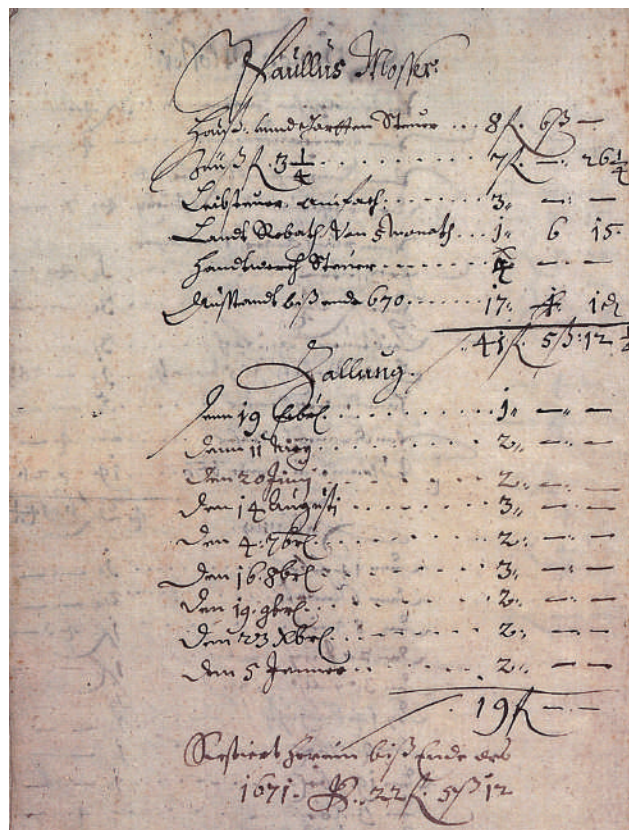 Paullus Moser.
Hauß: unnd Steuer ... 8 f. 6 ß —
3 1/4 ......... 7 f. — 26 1/4
Leibsteuer ...... 3 „ — —
Landts Robath von 5 monath ... 1 „ 6 15.
Handtwerch Steuer ....... 4 — —
Ausstandt biß ende 670 ...... 17 „
41 f. 5 ß: 12 1/2
Zallung.
Denn 19 ......... 1 „ — —
Denn 11 May ......... 2 „ — —
Den 20 Junij ......... 2 „ — —
Den 14 Augusti ......... 3 „ — —
Den 4. 7bris ......... 2 „ — —
Den 16. 8bris ......... 3 „ — —
Den 19. 9bris ......... 2 „ — —
Den 23 Xbris ......... 2 „ — —
Den 5 Jenner ......... 2 „ — —
19 f. — —
Restiert biß Ende des
1671. 22 f. 5 ß 12